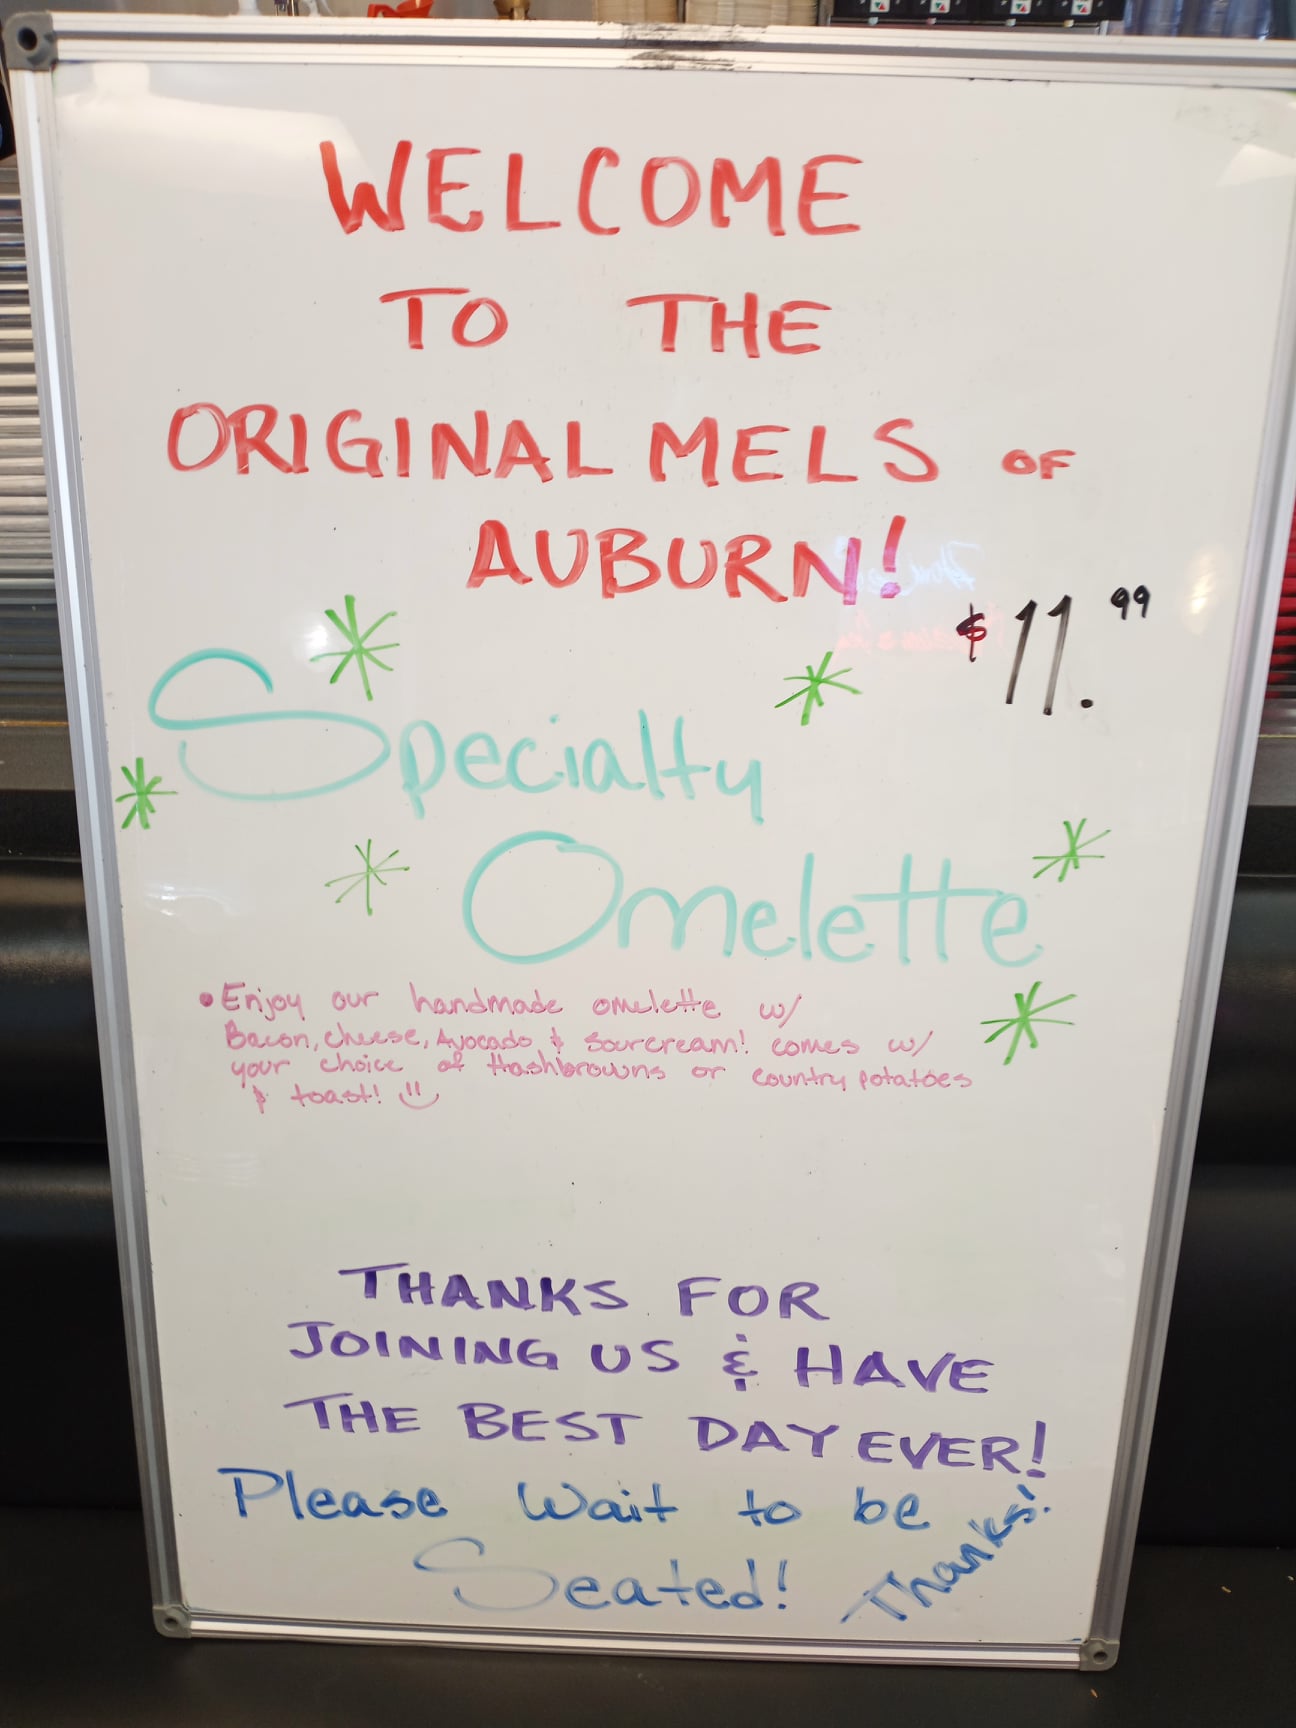 WELCOME
TO THE
ORIGINAL MELS OF
AUBURN!
$11.99
Specialty
Omelette
• Enjoy our handmade omelette w/
Bacon, cheese, Avocado & Sourcream! comes w/
your choice of Hashbrowns or country potatoes
& toast!
THANKS FOR
JOINING US & HAVE
THE BEST DAY EVER!
Please Wait to be
Seated! Thanks!